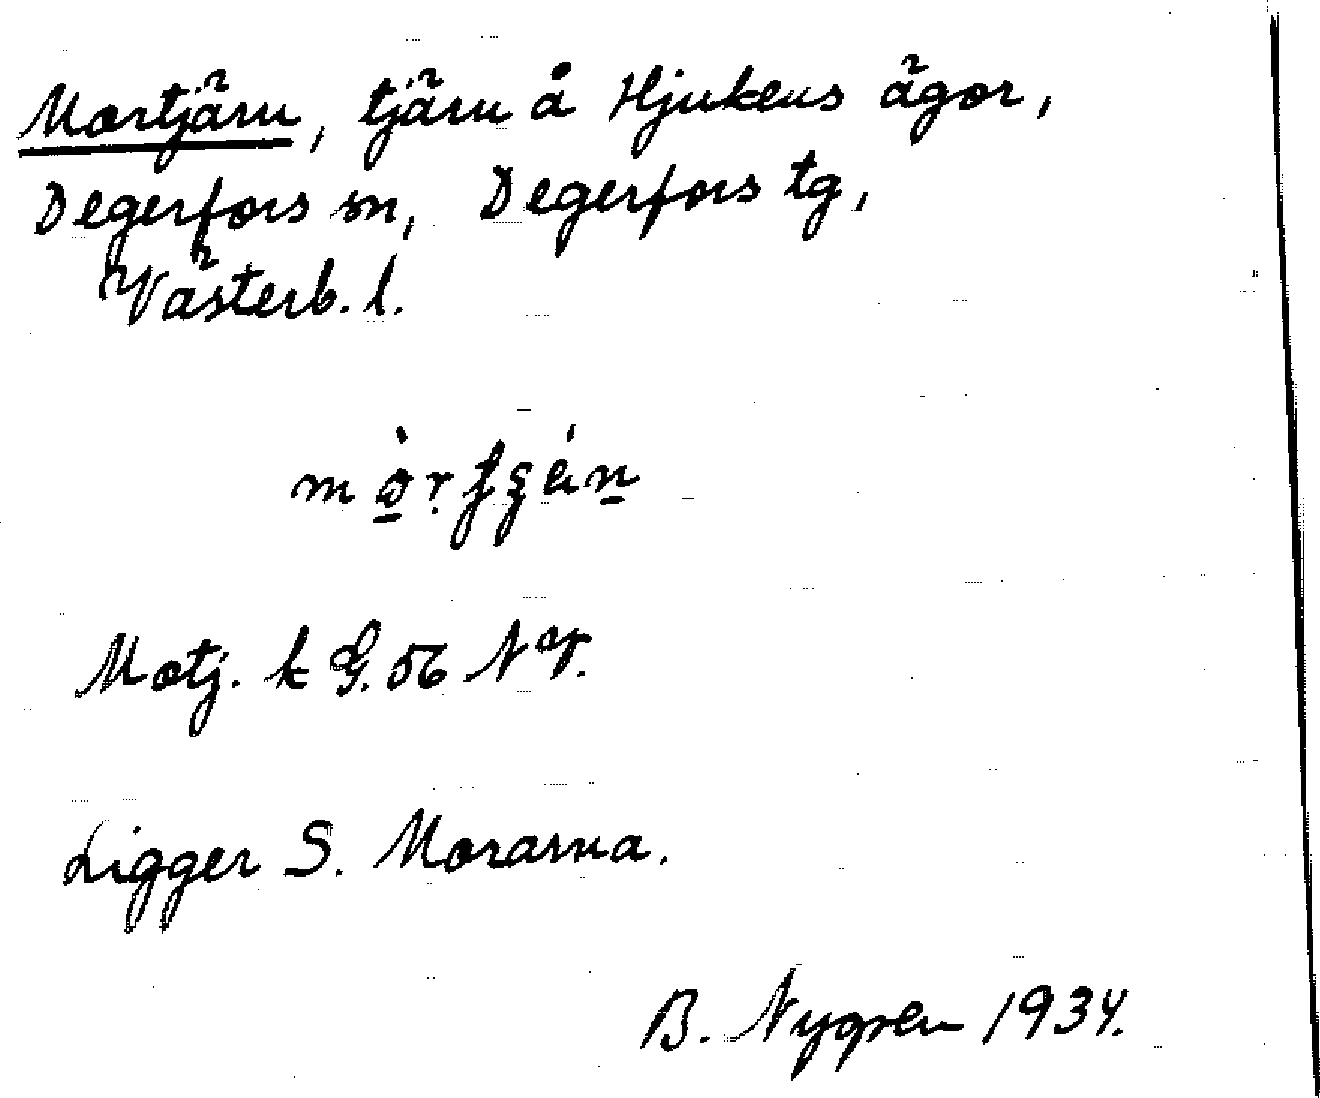 Mortjärn, tjärn å Hjukens ägor,
Degerfors sn, Degerfors tg,
Västerb. l.
Motj. k G. 56 N
Ligger S. Morarna.
B. Nygren 1934.